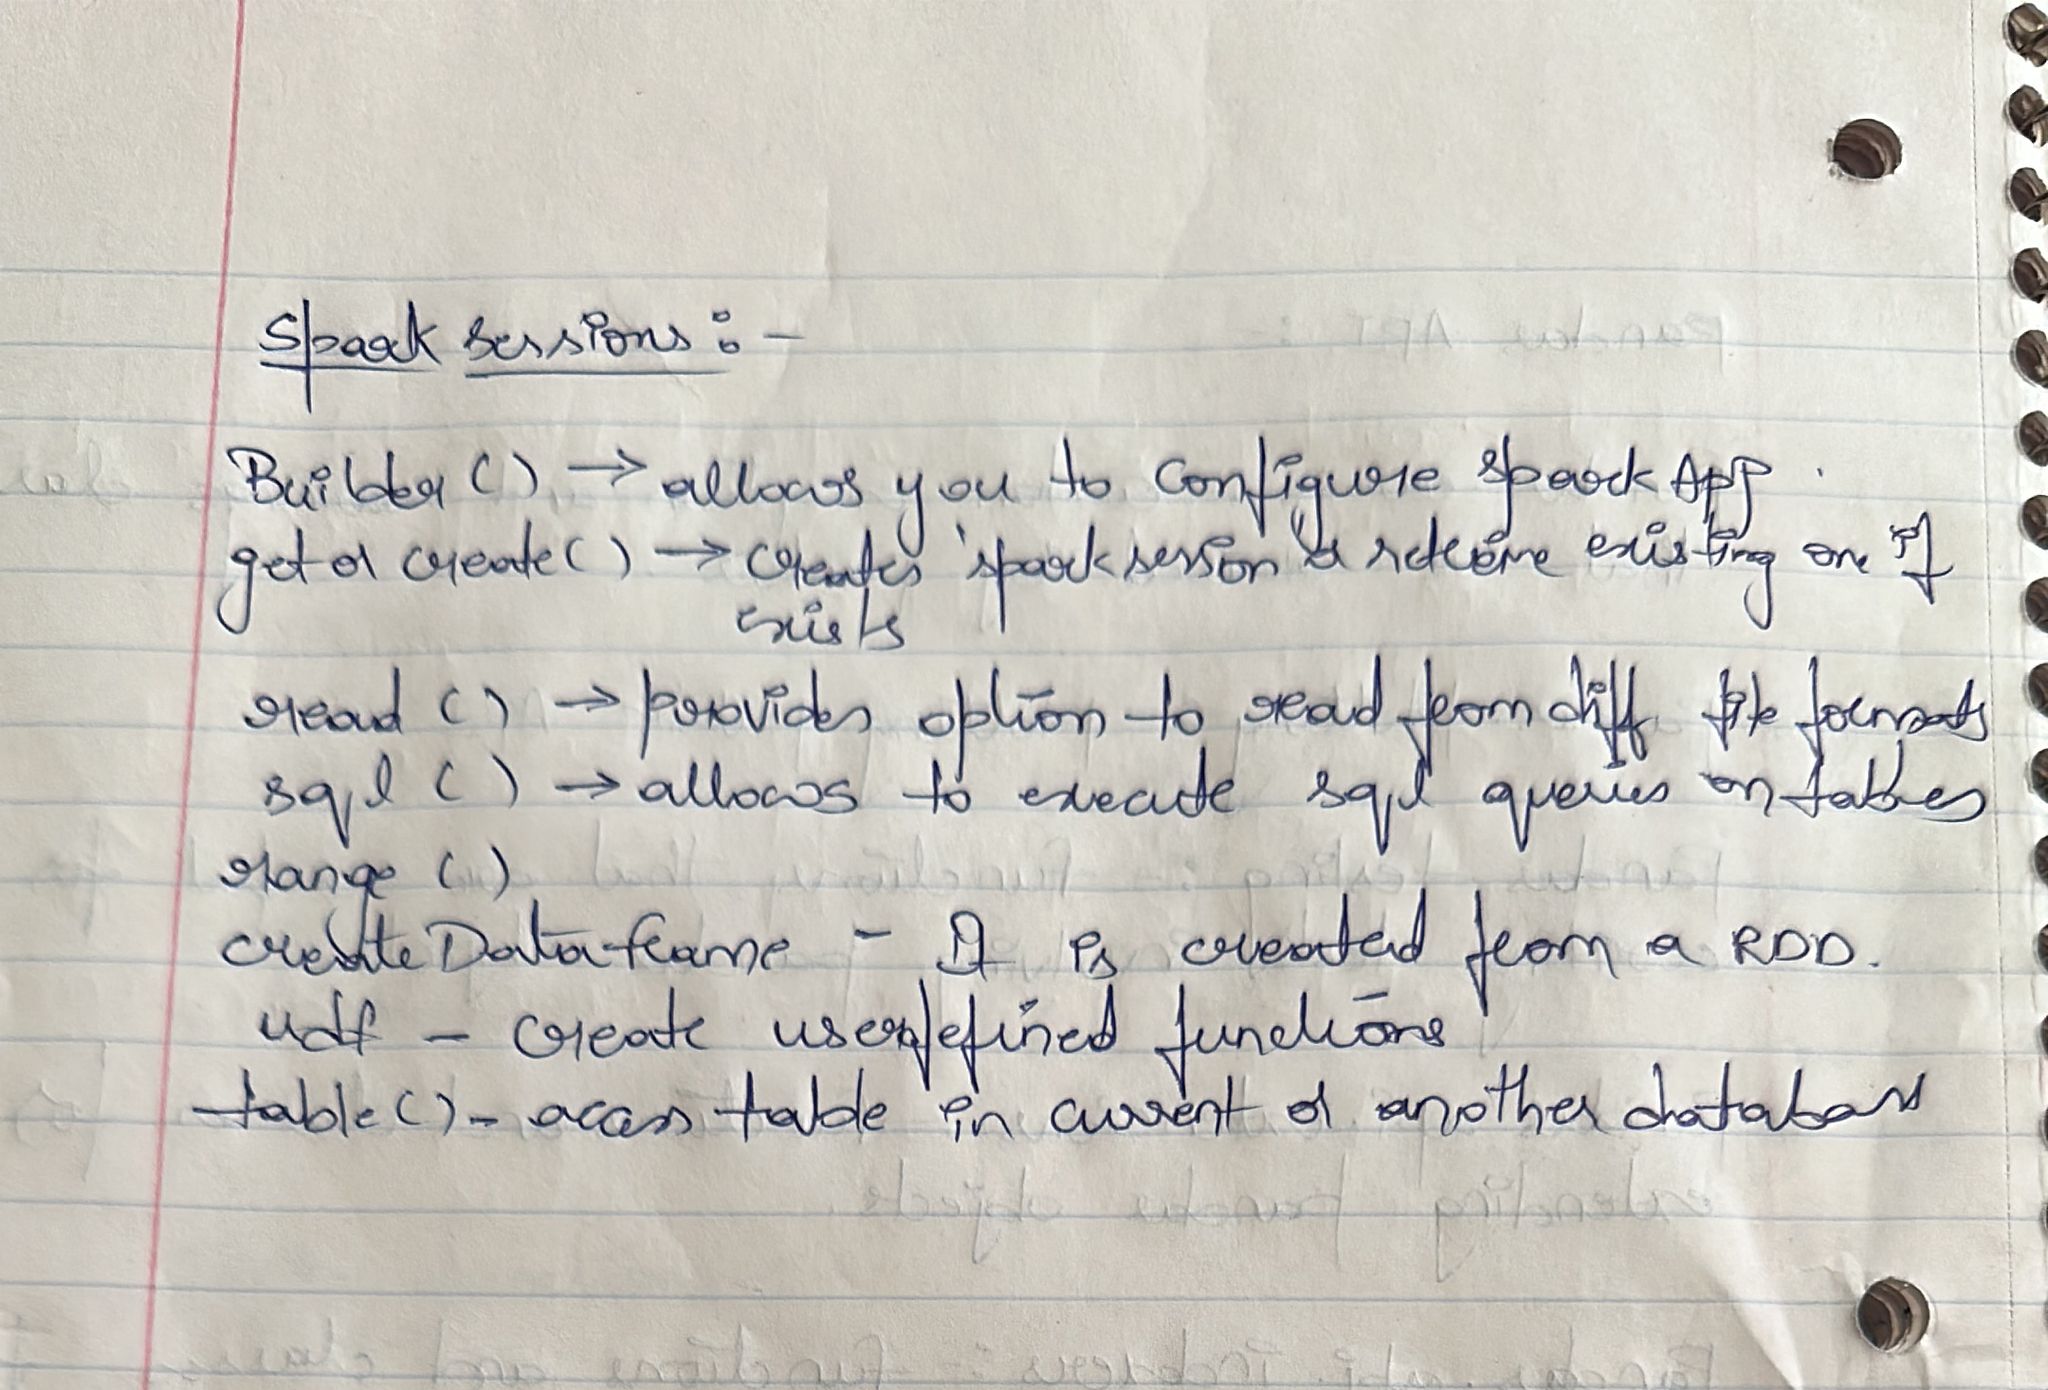 Spark sessions :-
Builder () → allows you to configure spark App.
get or create () → creates spark session or retrieve existing one if
exists
read () → provides option to read from diff file formats
sql () → allows to execute sql queries on tables
range ()
create Data frame - It is created from a RDD.
udf - create userdefined functions
table () - access table in current or another database